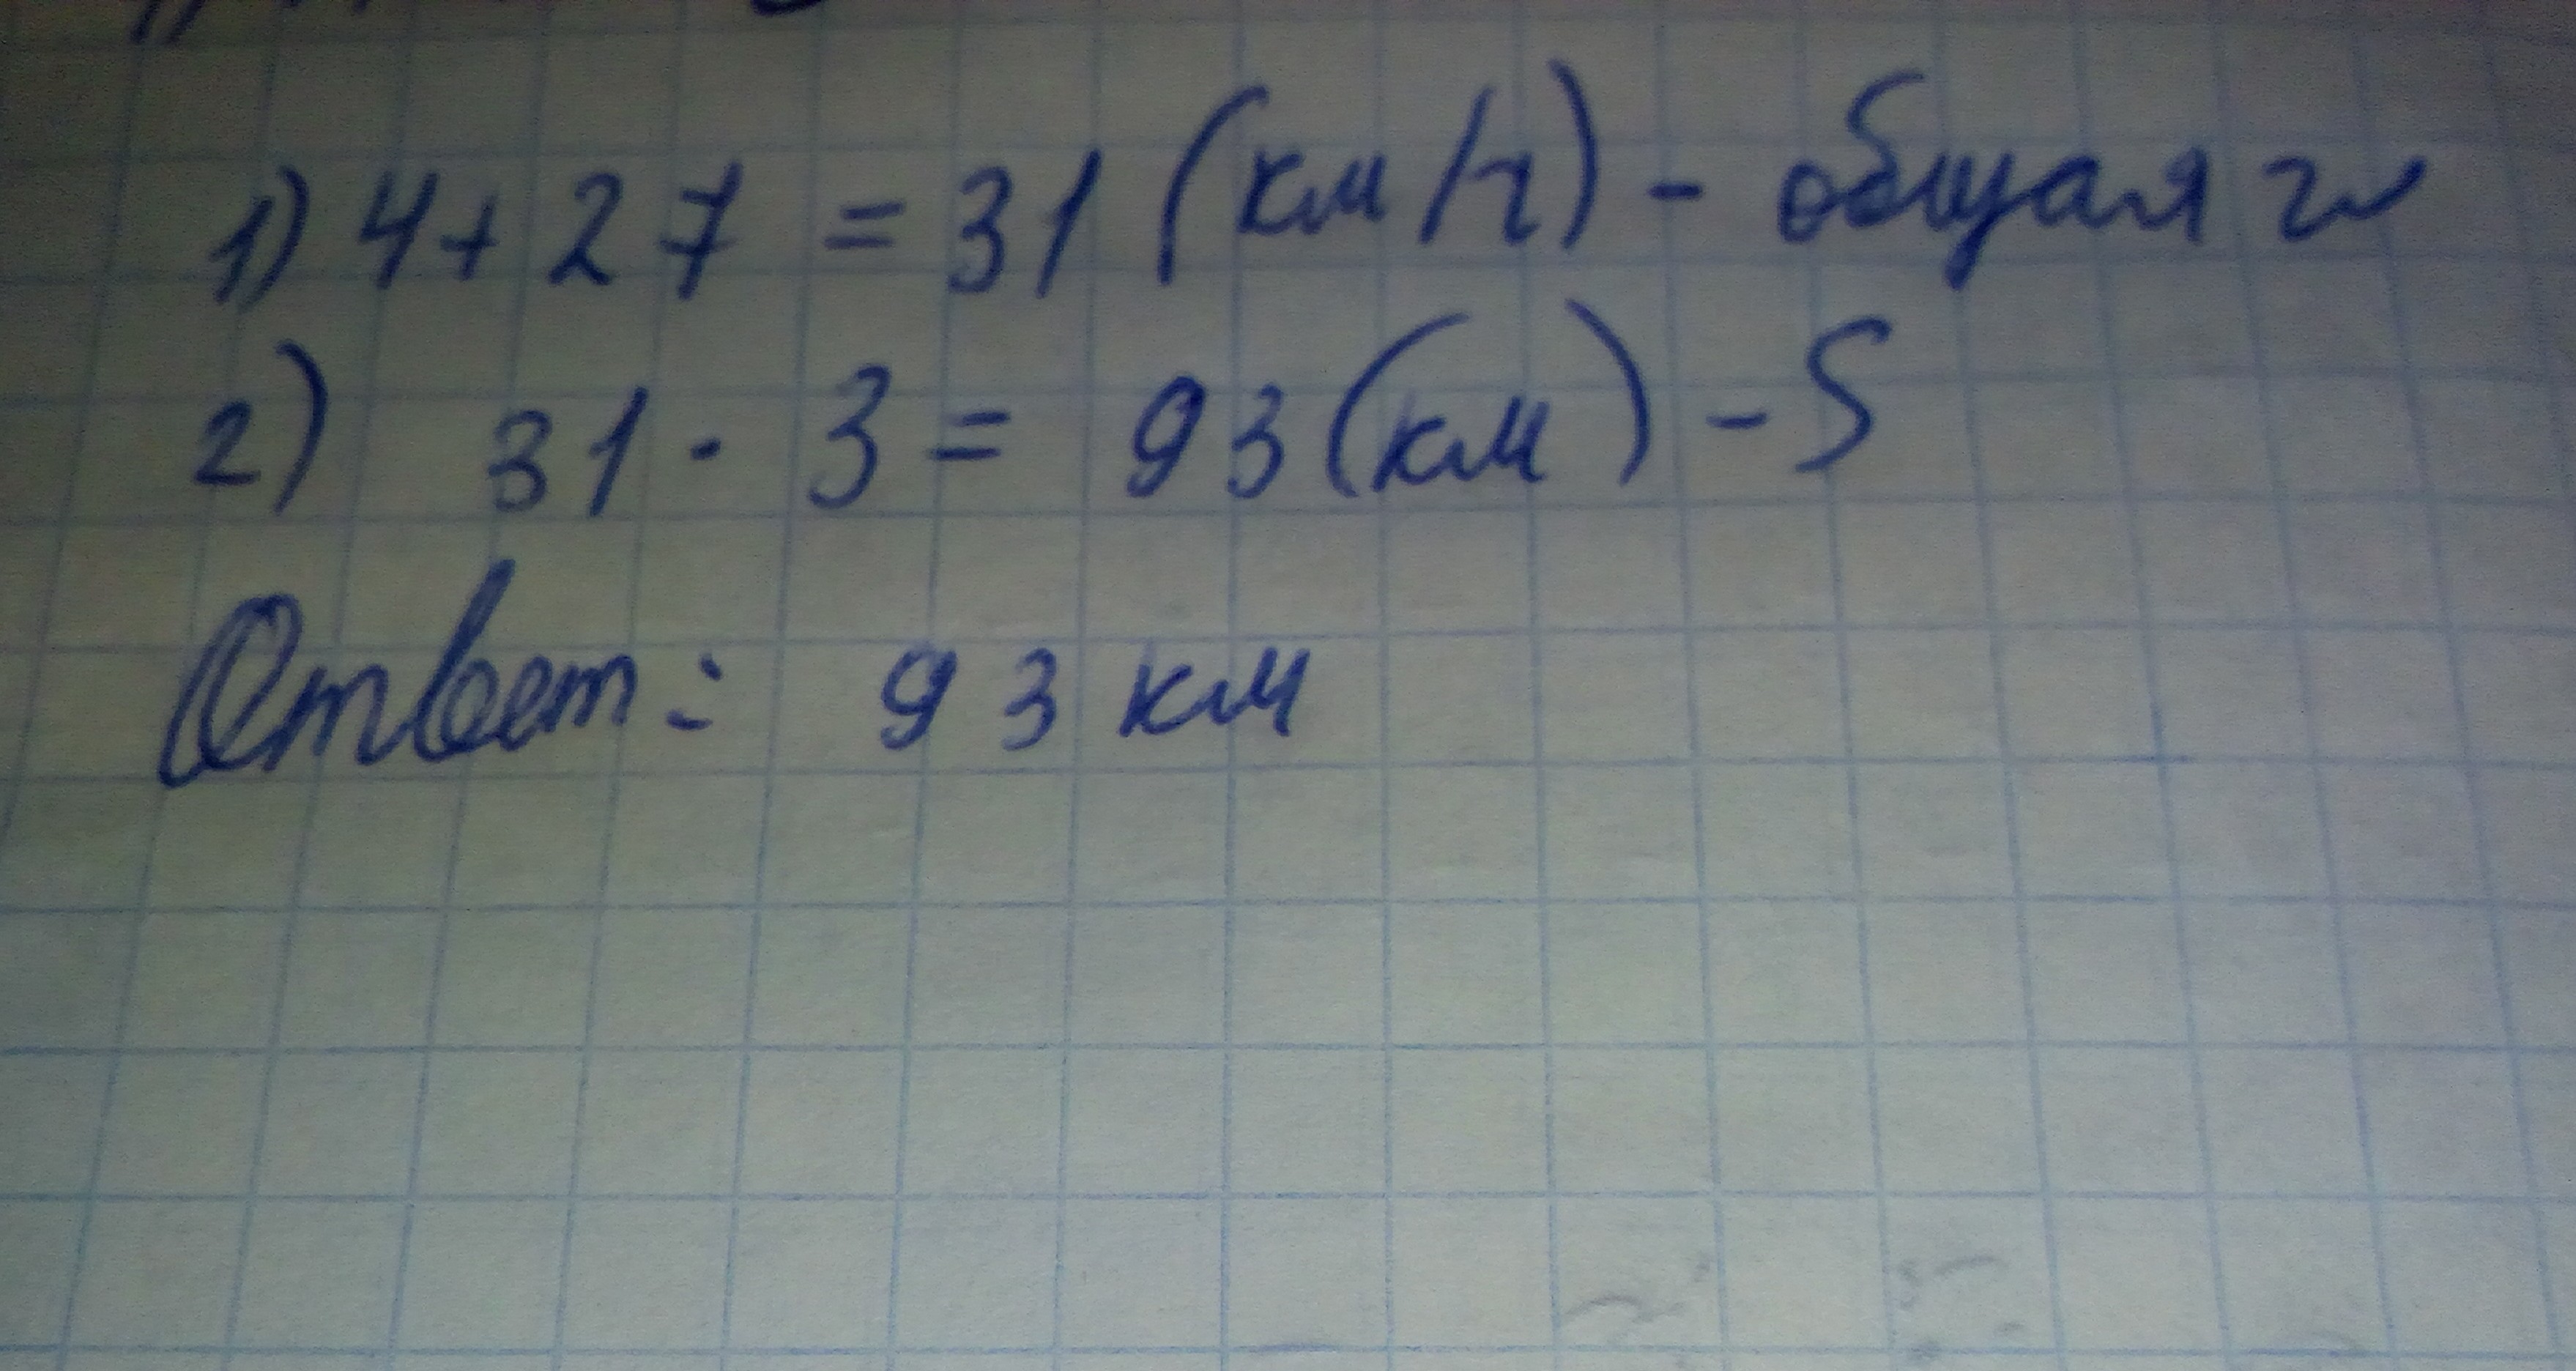 1) 4 + 27 = 31 (км/ч) - общая v
2) 31 · 3 = 93 (км) - S
Ответ: 93 км